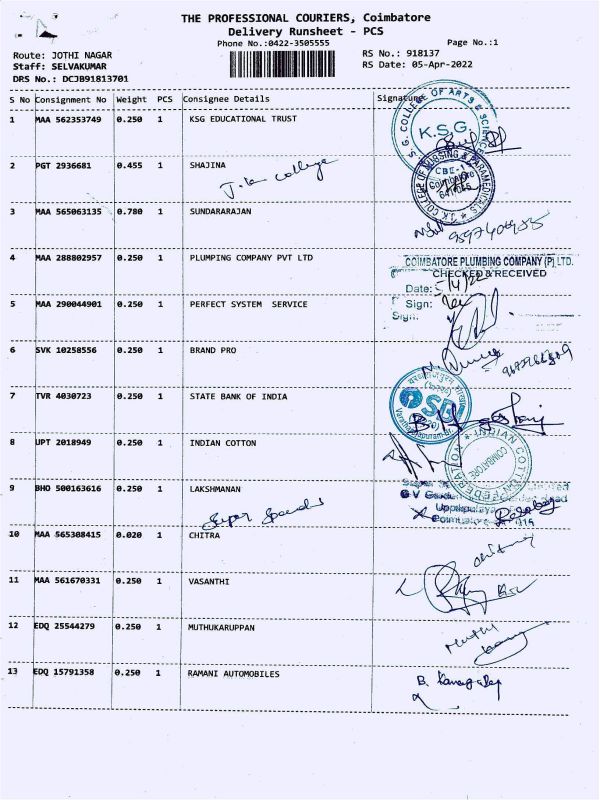 THE PROFESSIONAL COURIERS, Coimbatore
Delivery Runsheet - PCS
Phone No.:0422-3505555
Page No.:1
Route: JOTHI NAGAR
RS No.: 918137
Staff: SELVAKUMAR
RS Date: 05-Apr-2022
DRS No.: DCJB91813701
S No Consignment No Weight PCS Consignee Details Signature
1 MAA 562353749 0.250 1 KSG EDUCATIONAL TRUST
K.S.G.
2 PGT 2936681 0.455 1 SHAJINA
college
CBE-1
3 MAA 565063135 0.780 1 SUNDARARAJAN
4 MAA 288802957 0.250 1 PLUMPING COMPANY PVT LTD
COIMBATORE PLUMBING COMPANY (P) LTD.
CHECKED & RECEIVED
Date: 5/4/22
Sign:
5 MAA 290044901 0.250 1 PERFECT SYSTEM SERVICE
6 SVK 10258556 0.250 1 BRAND PRO
7 TVR 4030723 0.250 1 STATE BANK OF INDIA
SB
8 UPT 2018949 0.250 1 INDIAN COTTON
INDIAN COTTON FEDERATION
COIMBATORE
9 BHO 500163616 0.250 1 LAKSHMANAN
Super
10 MAA 565308415 0.020 1 CHITRA
11 MAA 561670331 0.250 1 VASANTHI
12 EDQ 25544279 0.250 1 MUTHUKARUPPAN
Muthu
13 EDQ 15791358 0.250 1 RAMANI AUTOMOBILES
B.